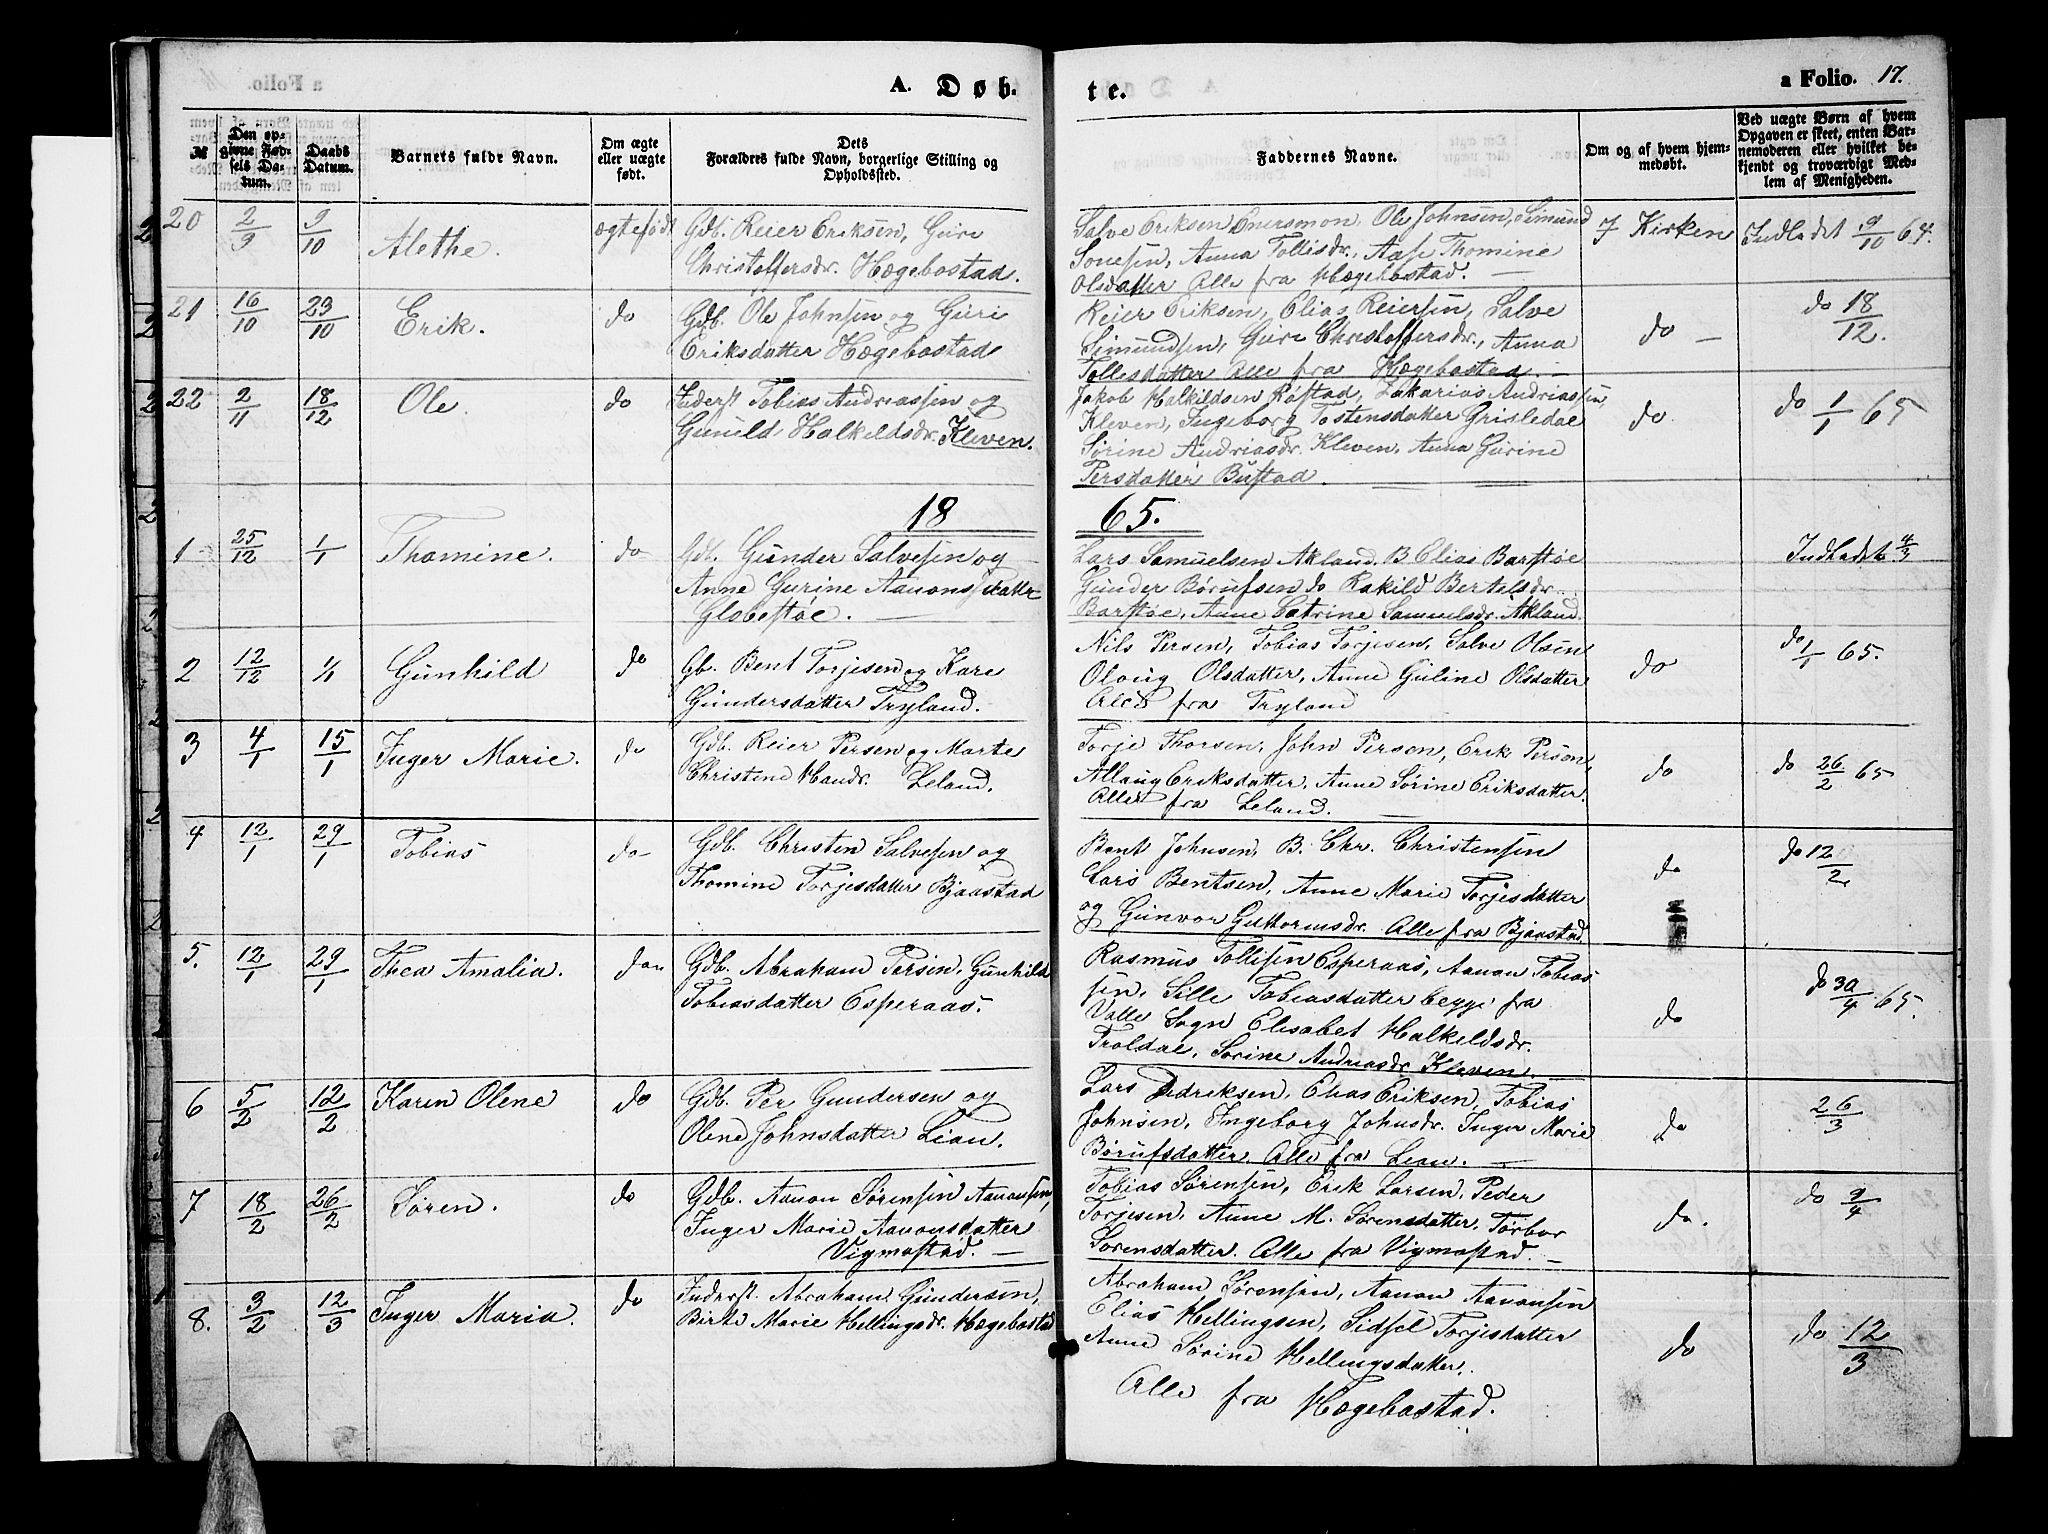 A. Døb-
te.
a Folio. 17.
№
Den op-
givne Fød-
sels Da-
tum.
Daabs
Datum.
Barnets fulde Navn.
Om ægte
eller uægte
født.
Dets
Forældres fulde Navn, borgerlige Stilling og
Opholdssted.
Faddernes Navne.
Om og af hvem hjem-
medøbt.
Ved uægte Børn af hvem
Opgaven er skeet, enten Bar-
nemoderen eller hvilket be-
kjendt og troværdigt Med-
lem af Menigheden.
20 2/9 9/10 Alethe. ægtefødt
Gdb. Reier Eriksen, Guri
Christoffersdr. Hægebostad.
Salve Eriksen, Ole Johnsen, Simund
Sonesen, Anna Tollisdr., Aase Thomine
Olsdatter Alle fra Hægebostad.
I Kirken
Indladet 9/10 64.
21 16/10 23/10 Erik. do
Gdb. Ole Johnsen og Guri
Eriksdatter Hægebostad
Reier Eriksen, Elias Reiersen, Salve
Simundsen, Guri Christoffersdr., Anna
Tollesdatter Alle fra Hægebostad.
do
do 18/12.
22 2/11 18/12 Ole. do
Inderst Tobias Andreassen og
Gunild Halkildsdr. Kleven.
Jakob Halkildsen Røstad, Zakarias Andriassen,
Kleven, Ingeborg Tostensdatter Grisledal
Sørine Andriasdr. Kleven, Anna Gurine
Persdatter Bustad.
do.
do 1/1 65
18
65.
1 25/12 1/1 Thomine. do
Gdb. Gunder Salvesen og
Anne Gurine Aanonsdatter
Globestøe.
Lars Samuelsen Akland. B Elias Barstøe
Gunder Børufsen do Rakild Bertelsdr.
Barstøe, Anne Catrine Samuelsdr. Akland.
Indladet 4/3
2 12/12 1/1 Gunhild do
Gb. Bent Torjesen og Kari
Gundersdatter Tryland.
Nils Persen, Tobias Torjesen, Salve Olsen
Olaug Olsdatter, Anne Guline Olsdatter
Alle fra Tryland
do
do 1/1 65.
3 4/1 15/1 Inger Marie. do
Gdb. Reier Persen og Marte
Christine Hansdr. Leland.
Torje Thorsen, John Person, Erik Person,
Allaug Eriksdatter, Anne Sørine Eriksdatter.
Alle fra Leland.
do
do 26/2 65
4 12/1 29/1 Tobias do
Gdb. Christen Salvesen og
Thomine Torjesdatter Bjaastad
Bent Johnsen, B. Chr. Christensen
Lars Bentsen, Anne Marie Torjesdatter
og Gunvor Guttormsdr. Alle fra Bjaastad.
do
do 12/2.
5. 12/1 29/1 Thea Amalia. do
Gdb. Abraham Persen, Gunhild
Tobiasdatter Esperaas.
Rasmus Tollisen Esperaas, Aanon Tobias
sen, Sille Tobiasdatter begge fra
Valle Sogn Elisabet Halkeldsdr.
Troldal, Sorine Andriasdr. Kleven.
do
do 30/4 65.
6 5/2 12/2 Karen Olene do
Gdb. Per Gundersen og
Olene Johnsdatter Lian.
Lars Dedriksen, Elias Eriksen, Tobias
Johnsen, Ingeborg Johnsdr. Inger Marie
Børufsdatter. Alle fra Lian.
do
26/3
7 18/2 26/2 Søren. do
Gdb. Aanon Sørensen Aanonsen,
Inger Marie Aanonsdatter
Vigmostad.
Tobias Sørensen, Erik Larsen, Peder
Torjesen, Anne M. Sørensdatter, Torbor
Sorensdatter. Alle fra Vigmostad.
do.
do 9/4
8. 3/2 12/3 Inger Maria. do
Inderst. Abraham Gundersen,
Birte Marie Hellingsdr. Hægebostad
Abraham Sørensen, Aanon Aanonsen
Elias Hellingsen, Sidsel Torjesdatter
Anne Sørine Hellingsdatter.
Alle fra Hægebostad.
do
do 12/3